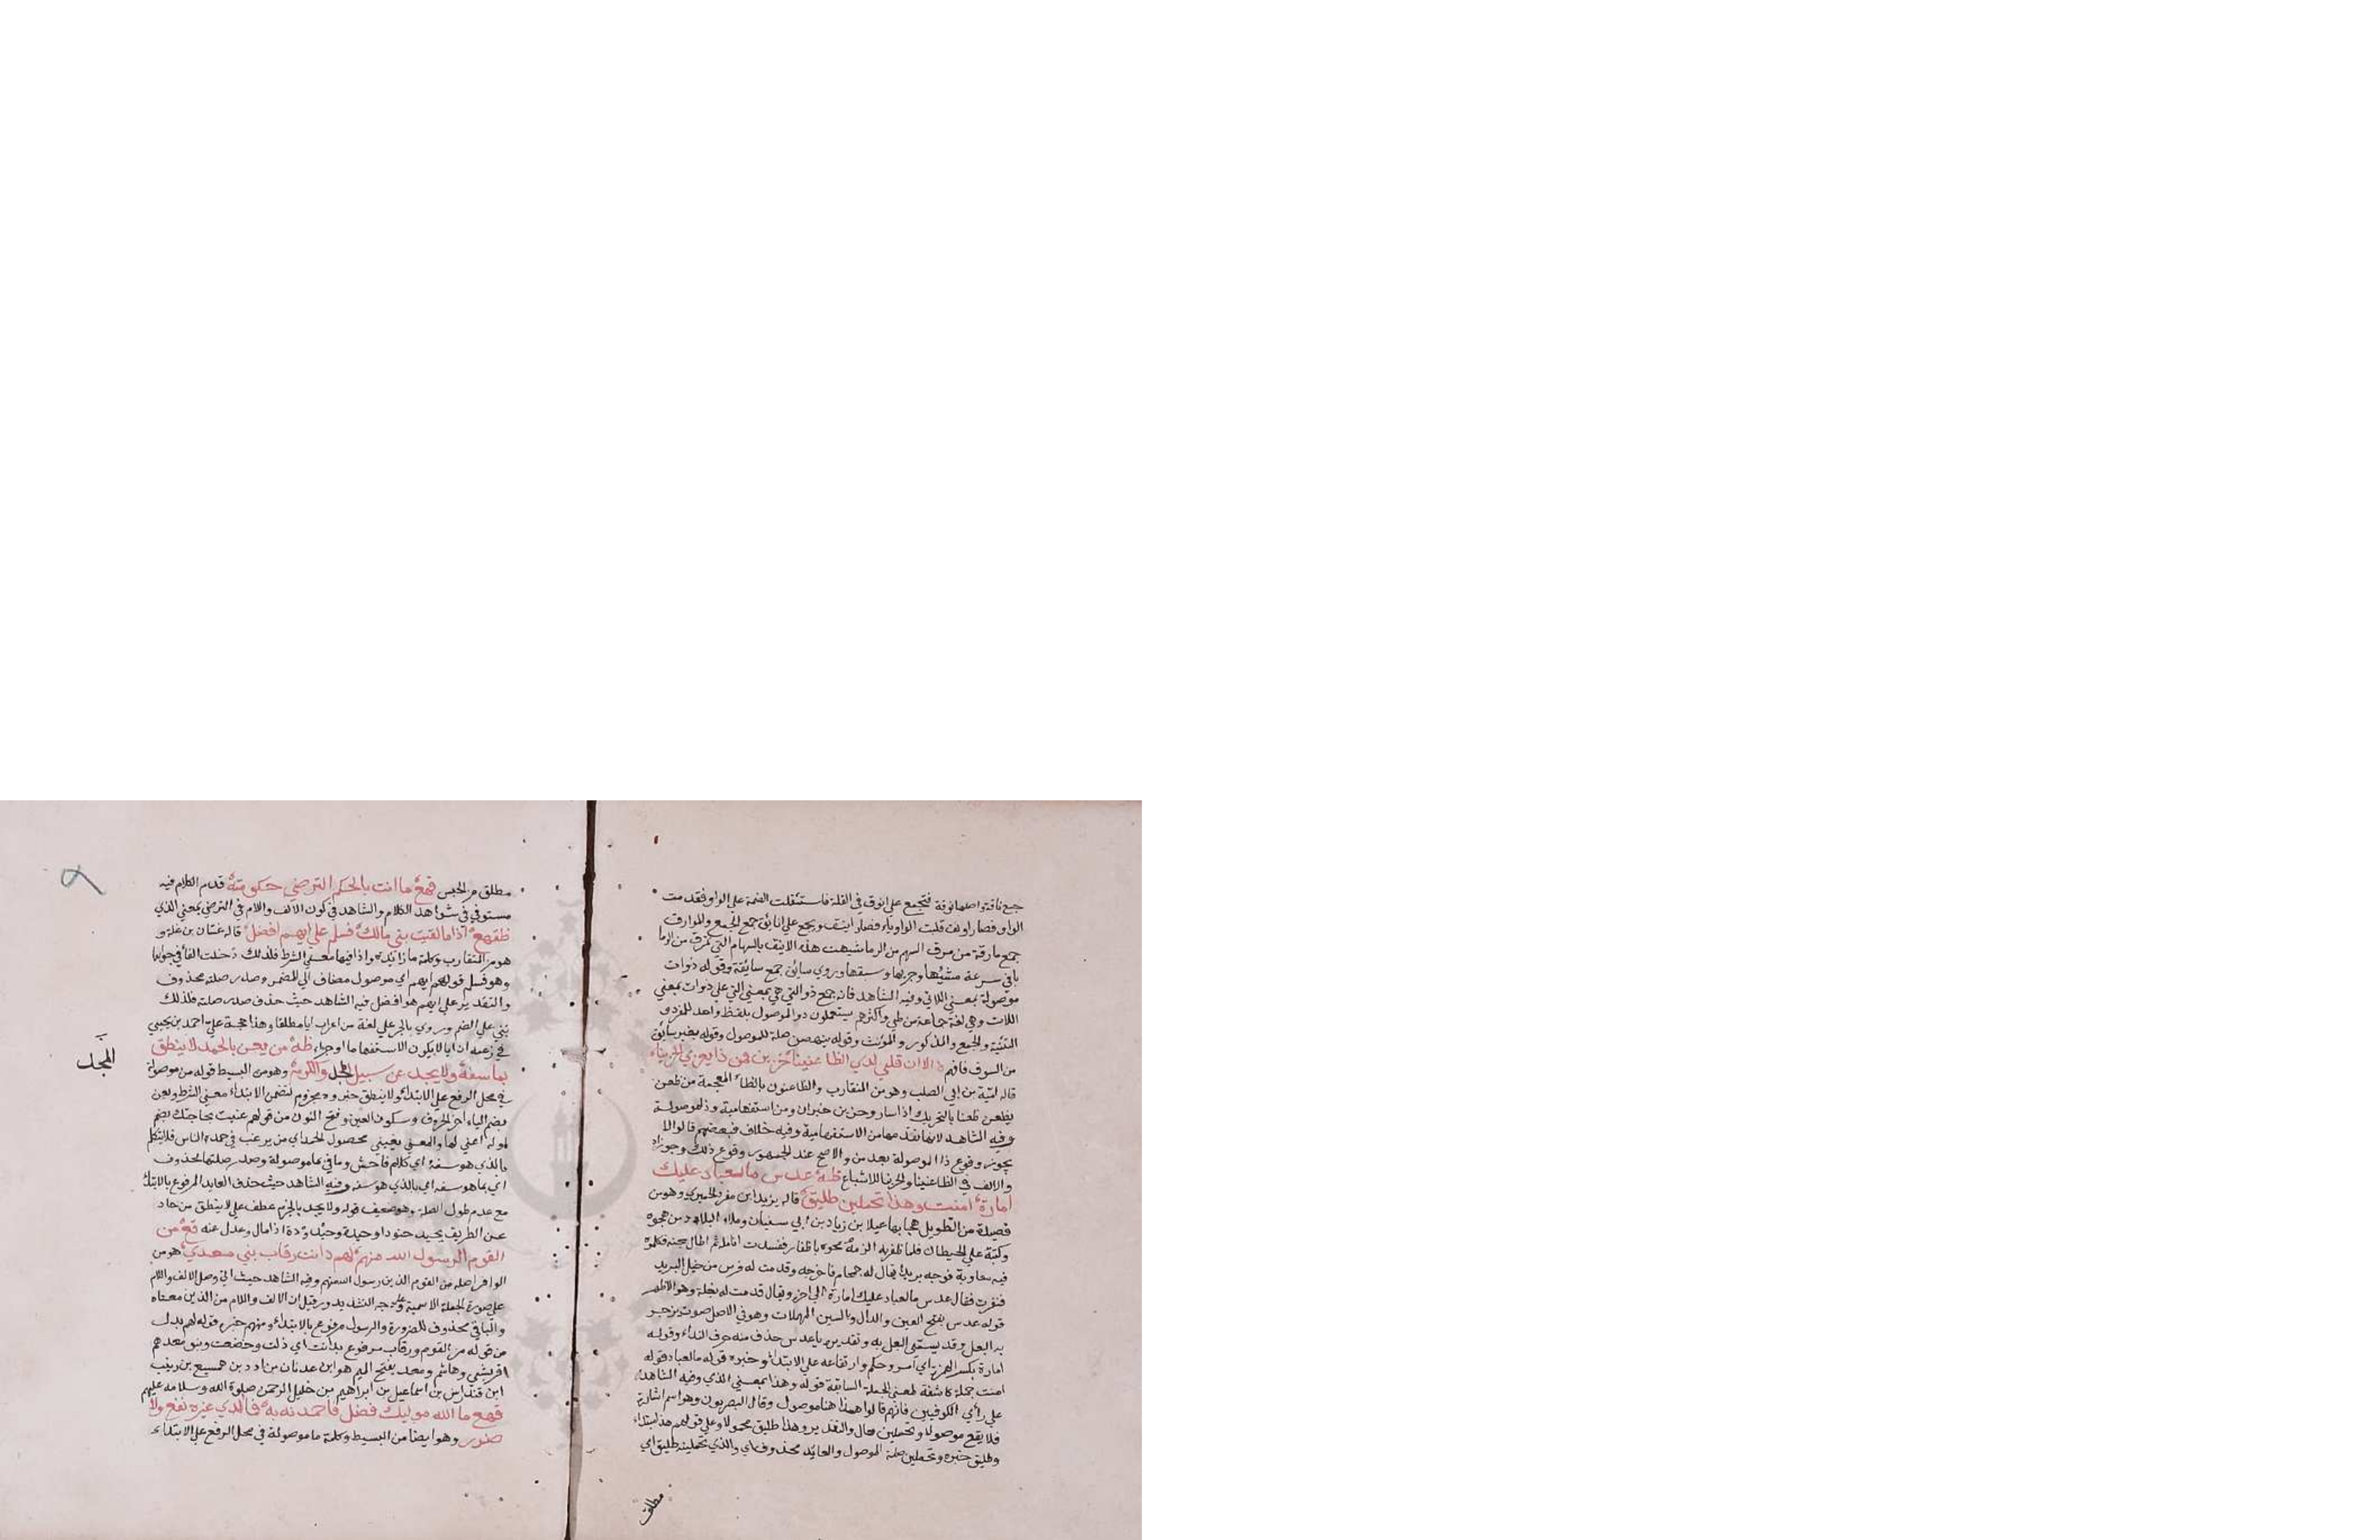 جمع ناقة واصلها نوقة فتجمع على انوق في القلة فاستثقلت الضمة على الواو فقدمت
الواو فصار اونق قلبت الواو ياء فصار اينق ويجمع على ايانق جمع الجمع والموارق
جمع مارقة من مرق السهم من الرما شبهت هذه الاينق بالسهام التي تمرق من الرما
باقي سرعة مشيها وجريها وسبقها وروي سايق جمع سايقة وقوله ذوات
موصولة بمعنى اللاتي وفيه الشاهد فانه جمع ذو التي هي بمعنى التي على ذوات بمعنى
اللات وهي لغة جماعة من طي واكثرهم يستعملون ذو الموصول بلفظ واحد للمفرد و
التثنية والجمع والمذكور والمؤنث وقوله ينهضن صلة للموصول وقوله بغير سايق
من السوق فافهم ه الا ان قلبي لدى الظاعنينا حزين فمن ذا يعزي الحزينا
قاله امية بن ابي الصلب وهو من المتقارب والظاعنون بالظاء المعجمة من ظعن
يظعن ظعنا بالتحريك اذا سار وحزين خبر ان ومن استفهامية وذا موصولة
وفيه الشاهد لانها تقدمها من الاستفهامية وفيه خلاف فبعضهم قالوا لا
يجوز وقوع ذا الموصولة بعد من والاصح عند الجمهور وقوع ذلك وجوزاه
والالف في الظاعنينا والحزينا للاشباع ظهع عدس ما لعباد عليك
امارة امنت وهذا تحملين طليق قاله يزيد ابن مفرغ الحميري وهو من
قصيدة من الطويل هجا بها عباد بن زياد بن ابي سفيان وملاء البلاد من هجوه
وكتبه على الحيطان فلما ظفر به الزمه محوه باظفاره ففسدت انامله ثم اطال سجنه فكلموه
فيه معاوية فوجه بريدا يقال له جمحام فاخرجه وقدمت له فرس من خيل البريد
فنفرت فقال عدس ما لعباد عليك امارة الى اخره ويقال قدمت له بغلة وهو الاظهر
قوله عدس بفتح العين والدال والسين المهملات وهو في الاصل صوت يزجر
به البغل وقد يسمى البغل به وتقديره يا عدس حذف منه حرف النداء وقوله
امارة بكسر الهمزة اي امر وحكم وارتفاعه على الابتداء وخبره قوله ما لعباد قوله
امنت جملة كاشفة لمعنى الجملة السابقة قوله وهذا بمعنى الذي وفيه الشاهد
على راي الكوفيين فانهم قالوا هذا هنا موصول وقال البصريون وهو اسم اشارة
فلا يقع موصولا وتحملين حال والتقدير وهذا طليق محمولا وعلى قولهم هذا مبتداء
وطليق خبره وتحملين صلة الموصول والعايد محذوف اي والذي تحملينه طليق اي
مطلق
مطلق من الحبس قهع ما انت بالحكم الترضى حكومته قدم الكلام فيه
مستوفي في شواهد الكلام والشاهد في كون الالف واللام في الترضى بمعنى الذي
ظقهع اذا ما لقيت بني مالك فسلم على ايهم افضل قاله غسان بن علة و
هو من المتقارب وكلمة ما زائدة واذا فيها معنى الشرط فلذلك دخلت الفا في جوابها
وهو فسلم قوله ايهم اي موصول مضاف الى المضمر وصدر صلته محذوف
والتقدير على ايهم هو افضل فيه الشاهد حيث حذف صدر صلته فلذلك
بني على الضم وروي بالجر على لغة من اعرب ايا مطلقا وهذا حجة على احمد بن يحيى
في زعمه ان ايا لا يكون الا استفهاما او جزاء ظه من يعن بالحمد لا ينطق
بما سفه ولا يحد عن سبيل المجد والكرم وهو من البسيط قوله من موصولة
المجد
في محل الرفع على الابتداء ولا ينطق خبره ومجزوم لتضمن الابتداء معنى الشرط ويعن
بضم الياء اخر الحروف وسكون العين وفتح النون من قولهم عنيت بحاجتك بضم
اوله اعنى لها والمعنى يغيني بحصول الحمد اي من يرغب في حمد الناس فلا يتكلم
بالذي هو سفه اي كلام فاحش وما في بما موصولة وصدر صلتها محذوف
اي بما هو سفه اي بالذي هو سفه وفيه الشاهد حيث حذف العايد المرفوع بالابتداء
مع عدم طول الصلة وهو ضعيف قوله ولا يحد بالجزم عطف على لا ينطق من حاد
عن الطريق يحيد حيودا وحيدة وحيدودة اذا مال وعدل عنه قهع من
القوم الرسول الله منهم لهم دانت رقاب بني معدي هو من
الوافر اصله من القوم الذين رسول الله منهم وفيه الشاهد حيث اتى وصل الالف واللام
على صورة الجملة الاسمية وعلى وجه التشديد وقيل ان الالف واللام من الذين معناه
والباقي محذوف للضرورة والرسول مرفوع بالابتداء ومنهم خبره قوله لهم بدل
من قوله من القوم ورقاب مرفوع بدانت اي ذلت وخضعت وبنو معد هم
قريش وهاشم ومعد بفتح الميم هو ابن عدنان بن ادد بن هميسع بن
ابن قيدار بن اسماعيل بن ابراهيم بن خليل الرحمن صلوة الله وسلامه عليهم
قهع ما الله موليك فضل فاحمدنه به فما لدي غيره نفع ولا
ضرر وهو ايضا من البسيط وكلمة ما موصولة في محل الرفع على الابتداء